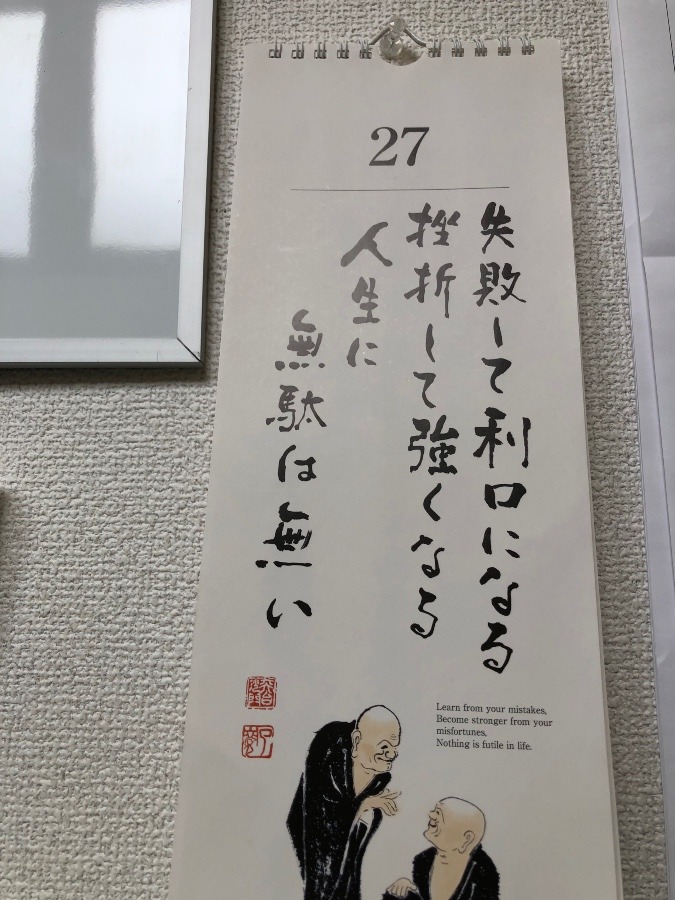 27
失敗して利口になる
挫折して強くなる
人生に
無駄は無い
Learn from your mistakes,
Become stronger from your
misfortunes,
Nothing is futile in life.